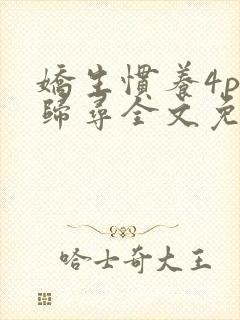 嬌生慣養4p
歸尋全文免
哈士奇大王